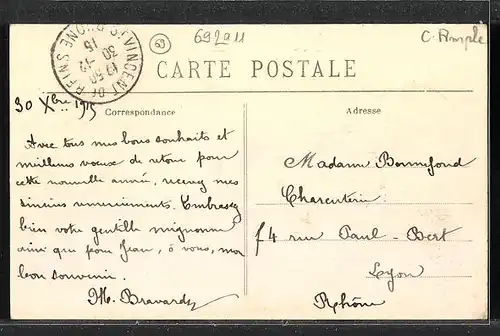 692911
C. Ample
63
ST VINCENT DE REINS RHONE
17 50
30 -12
15
CARTE POSTALE
30 Xbre 1915
Correspondance
Adresse
Avec tous mes bons souhaits et
meilleurs vœux de retour pour
cette nouvelle année, recevez mes
sincères remerciements. Embrassez
bien votre gentille mignonne
ainsi que pour Jean, à vous, mon
bon souvenir.
M. Bravardy
Madame Bonnefond
Charcuterie
74 rue Paul-Bert
Lyon
Rhône